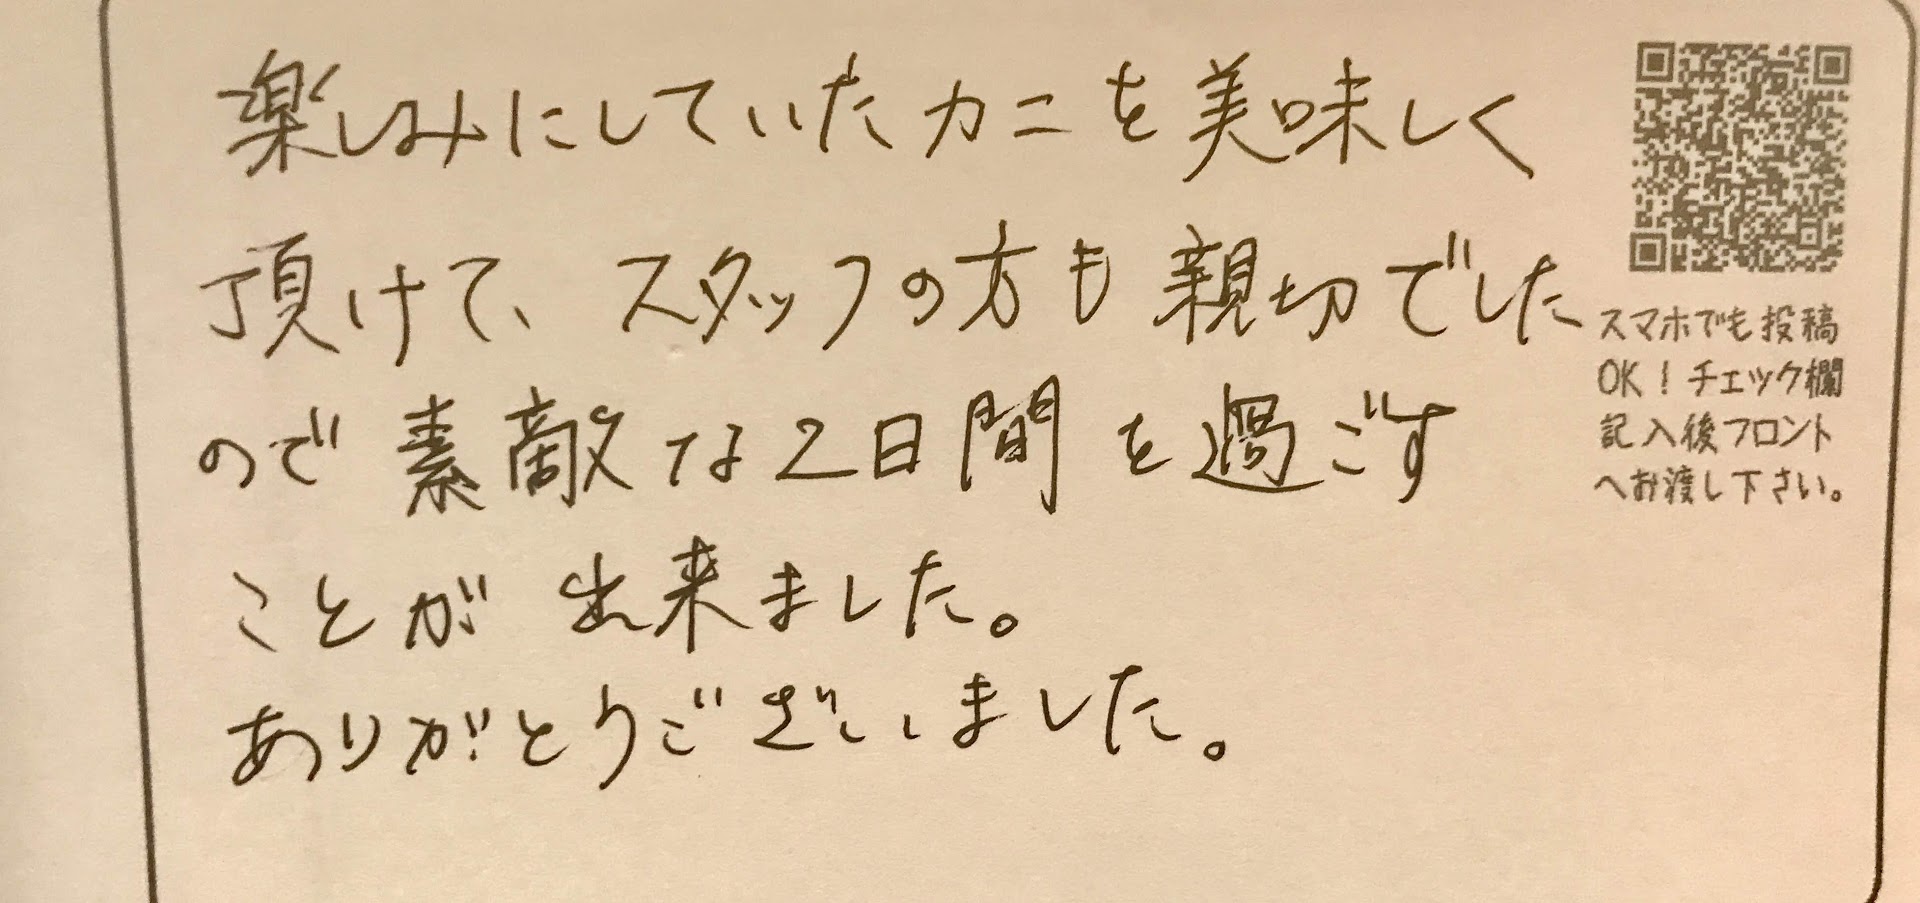 楽しみにしていたカニを美味しく
頂けて、スタッフの方も親切でした
ので素敵な2日間を過ごす
ことが出来ました。
ありがとうございました。
スマホでも投稿
OK！チェック欄
記入後フロント
へお渡し下さい。